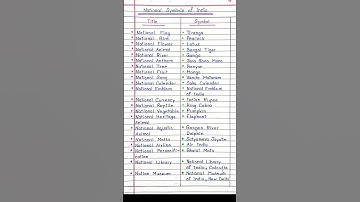 National Symbols of India
Title Symbol
National Flag Tiranga
National Bird Peacock
National Flower Lotus
National Animal Bengal Tiger
National River Ganga
National Anthem Jana Gana Mana
National Tree Banyan
National Fruit Mango
National Song Vande Mataram
National Calendar Saka Calendar
National Emblem National Emblem
of India
National Currency Indian Rupee
National Reptile King Cobra
National Vegetable Pumpkin
National Heritage Elephant
Animal
National Aquatic Ganges River
Animal Dolphin
National Motto Satyameva Jayate
National Airline Air India
National Personifi- Bharat Mata
cation
National Library National Library
of India, Calcutta
Nation Museum National Museum
of India, New Delhi